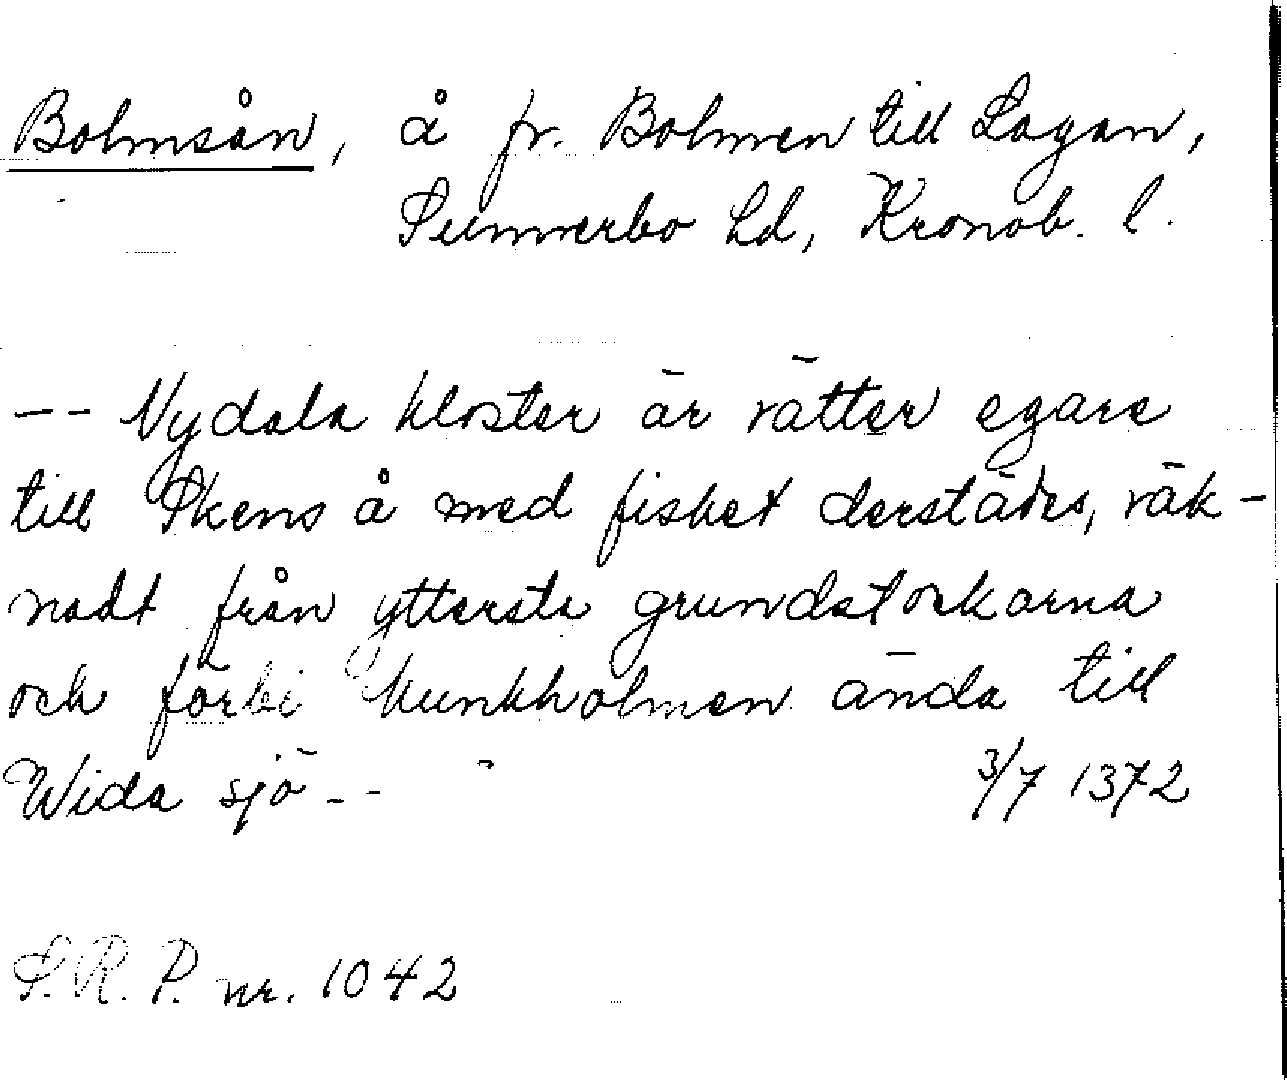 Bolmsån, å fr. Bolmen till Lagan,
Sunnerbo hd, Kronob. l.
-- Nydala kloster är rätter egare
till Skens å med fisket derstädes, räk-
nadt från yttersta grundstockarna
och förbi Munkholmen ända till
Wida sjö -- 3/7 1372
S.R.P. nr. 1042